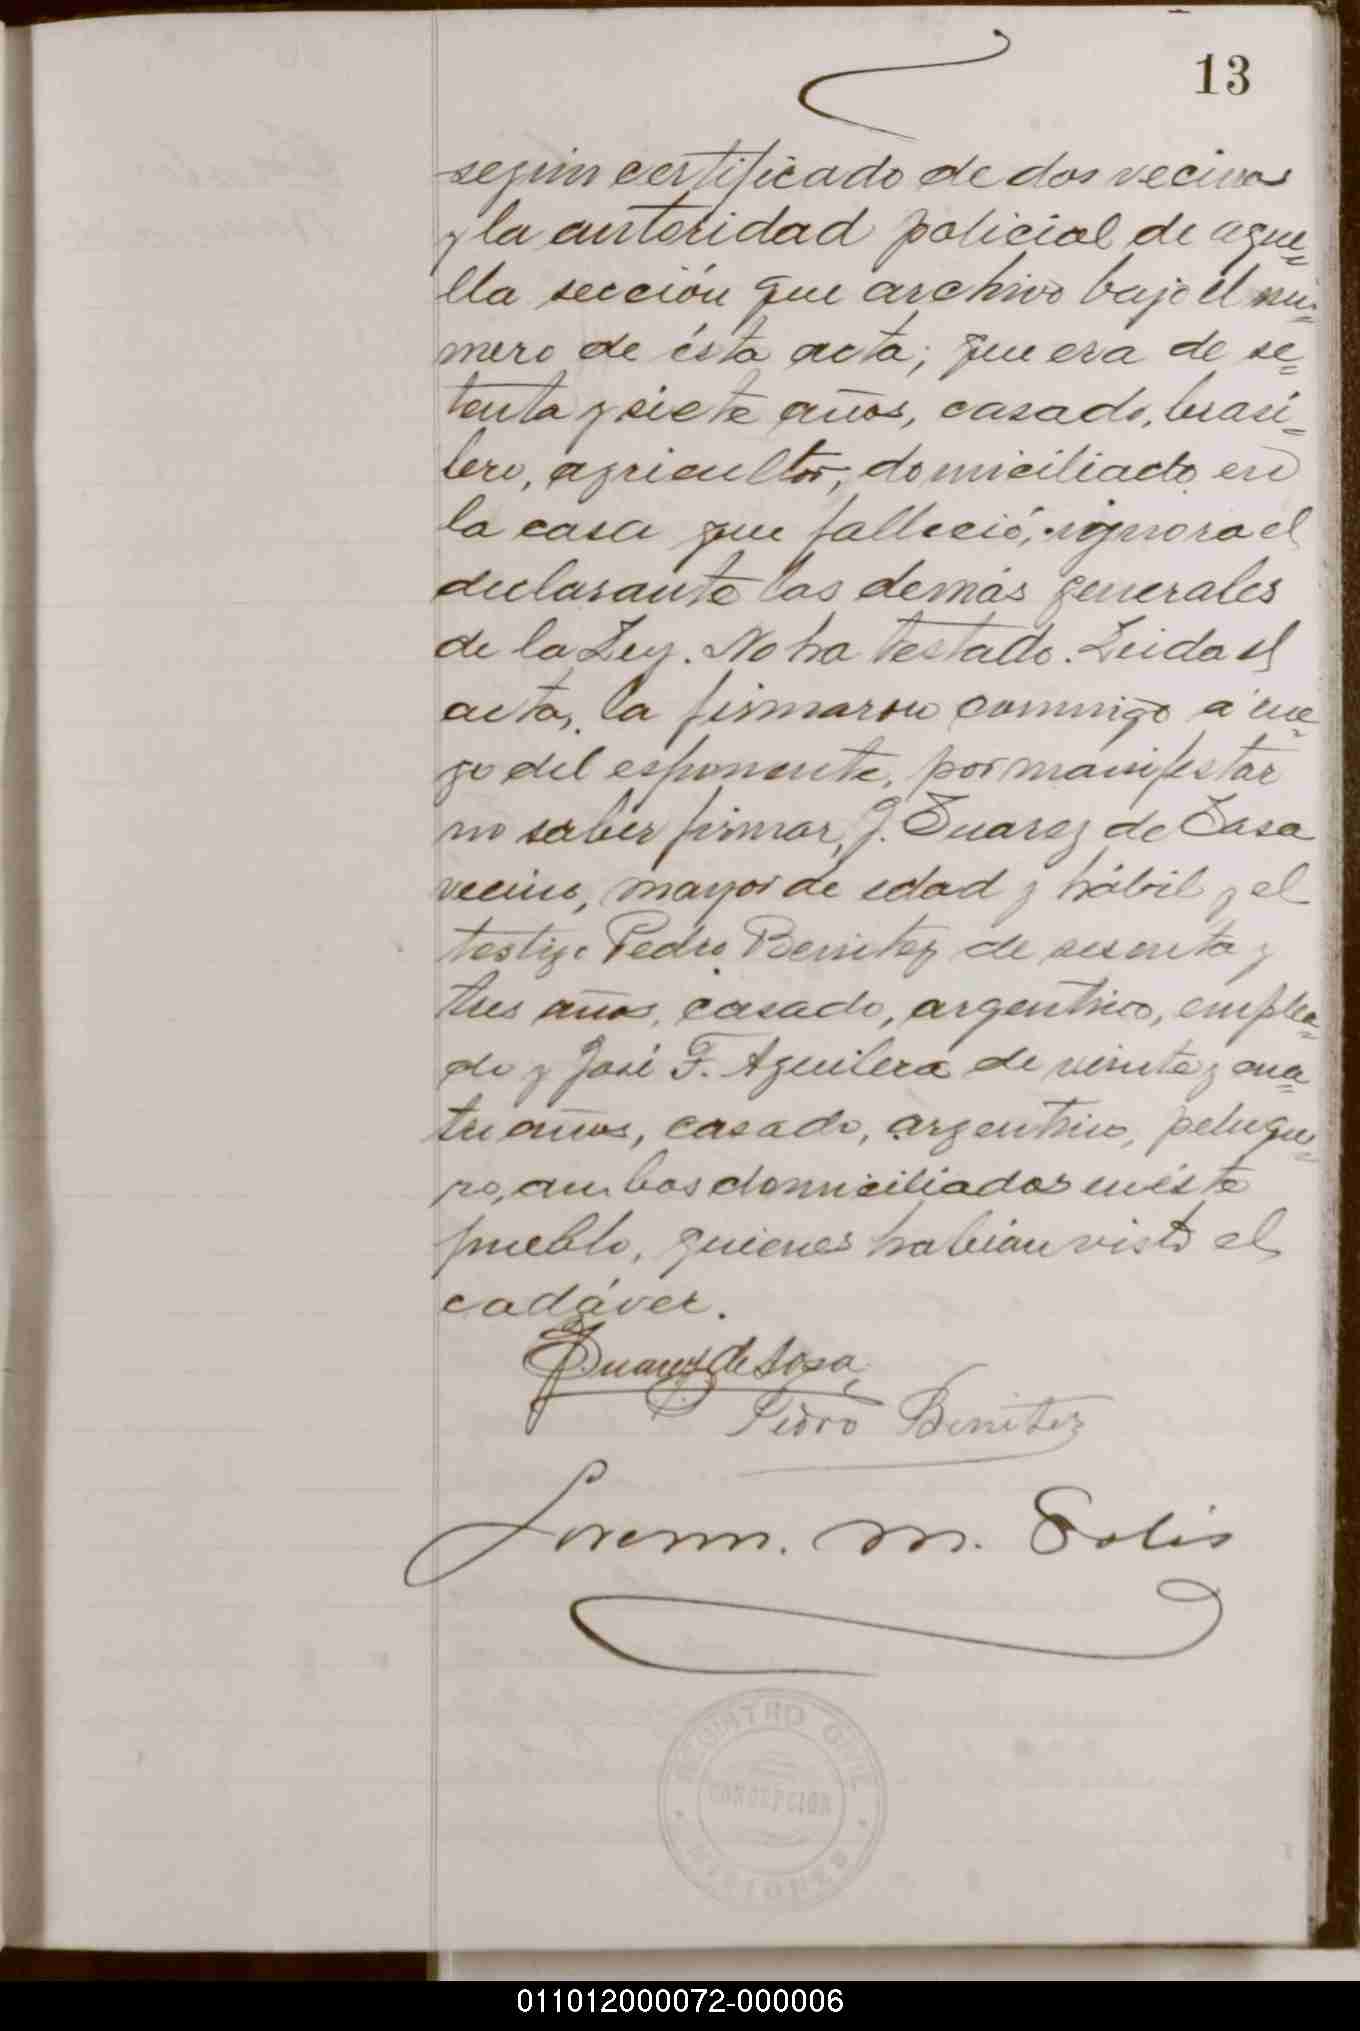 13
segun certificado de dos vecinos
y la autoridad policial de aque=
lla sección que archivo bajo el nú=
mero de ésta acta; que era de se=
tenta y siete años, casado, brasi=
lero, agricultor, domiciliado en
la casa que falleció, ignora el
declarante las demás generales
de la Ley. No ha testado. Leida el
acta, la firmaron conmigo á rue=
go del esponente, por manifestar
no saber firmar, J. Suarez de Sosa
vecino, mayor de edad y hábil y el
testigo Pedro Benitez de sesenta y
tres años, casado, argentino, emplea=
do y José F. Aguilera de veinte y cua=
tro años, casado, argentino, peluque=
ro, ambos domiciliados en éste
pueblo, quienes habian visto el
cadáver.
JSuarez de Sosa
Pedro Benitez
M. Solis
REGISTRO CIVIL
CONCEPCION
MISIONES
011012000072-000006